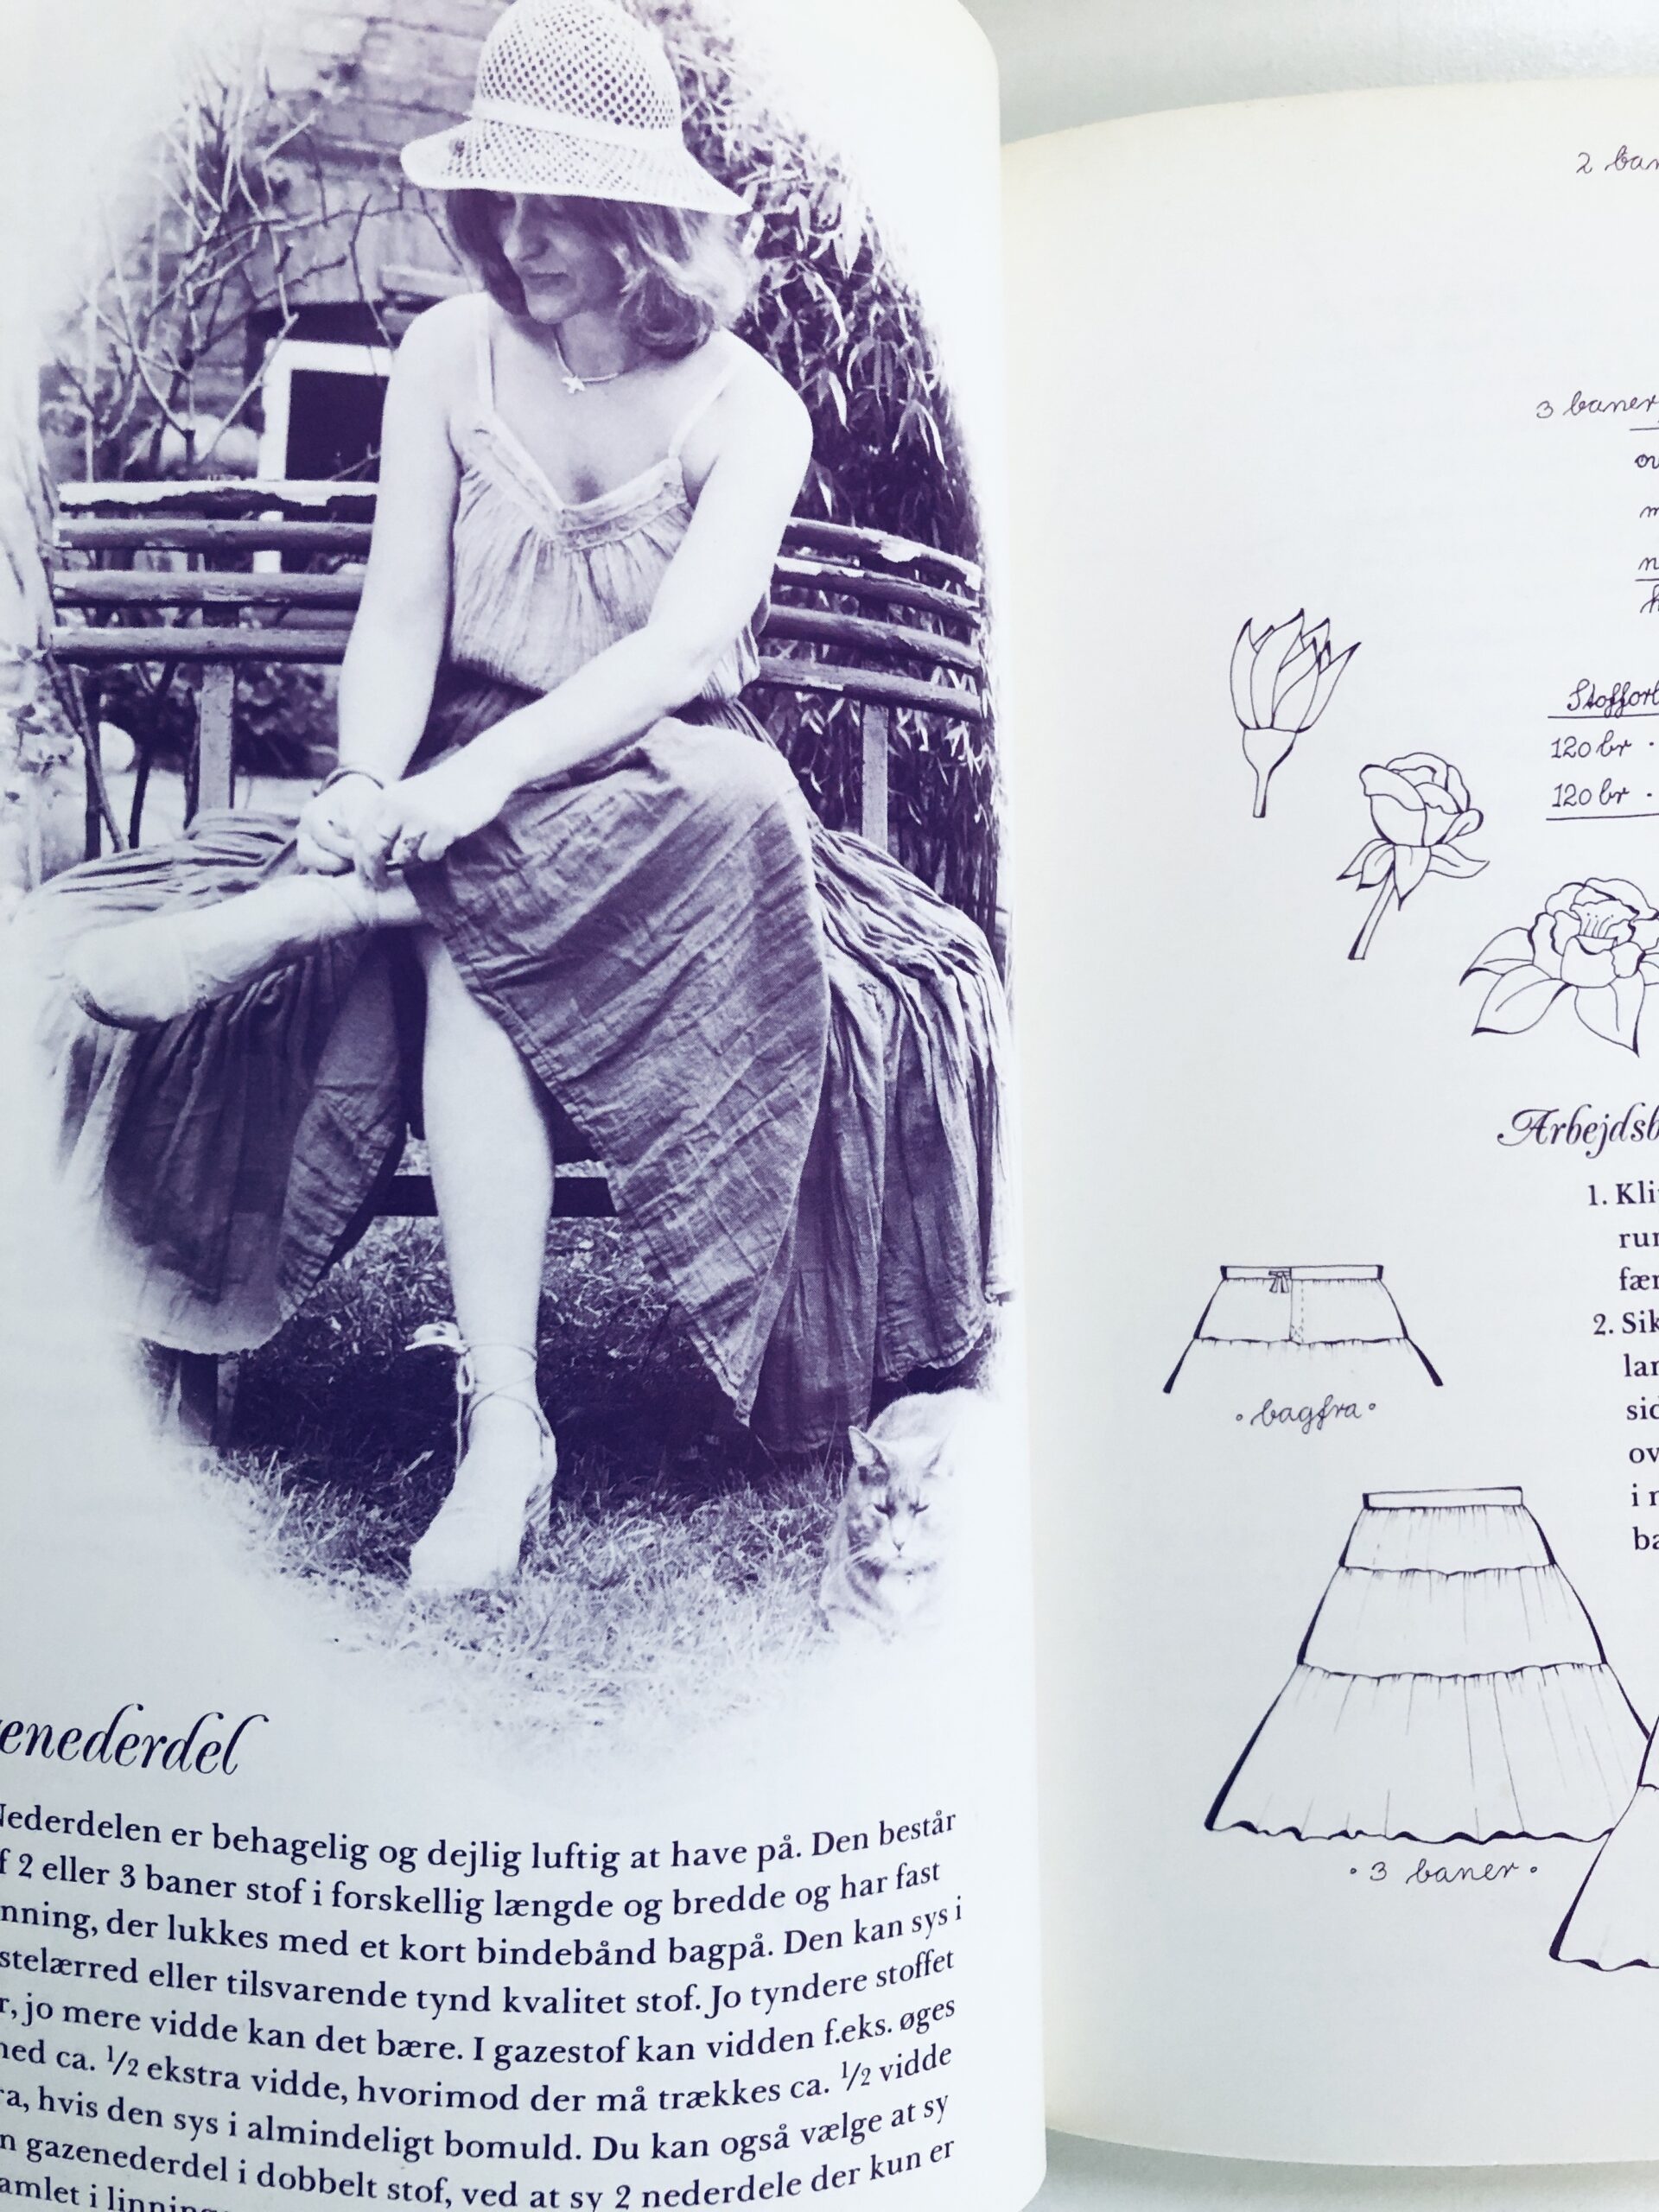 enederdel
Nederdelen er behagelig og dejlig luftig at have på. Den består
f 2 eller 3 baner stof i forskellig længde og bredde og har fast
nning, der lukkes med et kort bindebånd bagpå. Den kan sys i
stelærred eller tilsvarende tynd kvalitet stof. Jo tyndere stoffet
r, jo mere vidde kan det bære. I gazestof kan vidden f.eks. øges
ned ca. ½ ekstra vidde, hvorimod der må trækkes ca. ½ vidde
ra, hvis den sys i almindeligt bomuld. Du kan også vælge at sy
n gazenederdel i dobbelt stof, ved at sy 2 nederdele der kun er
amlet i linning
2 ban
3 baner
ov
m
n
h
Stofforb
120 br ·
120 br ·
Arbejdsb
1. Kli
rur
fær
2. Sik
lar
sid
ov
i n
ba
° bagfra °
· 3 baner ·